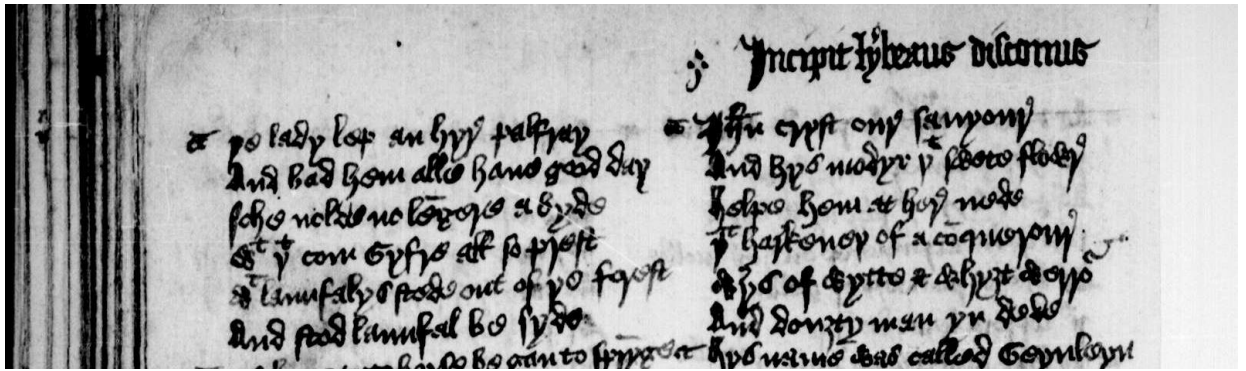 Incipit lybeaus disconus
þe lady lep an hyr palfray
And bad hem alle haue good day
sche nolde no lengere a byde
wt þt com Gyfre all so prest
wt launfalys stede out of þe forest
And stod launfal be syde
to sprynge
Jhu cryst our sauyour
And hys modyr þt swete flour
helpe hem at her nede
þt harkeneþ of a conquerour
wys of wytte & whyȝt werrour
And douȝty man yn dede
hys name was called Geynleyn